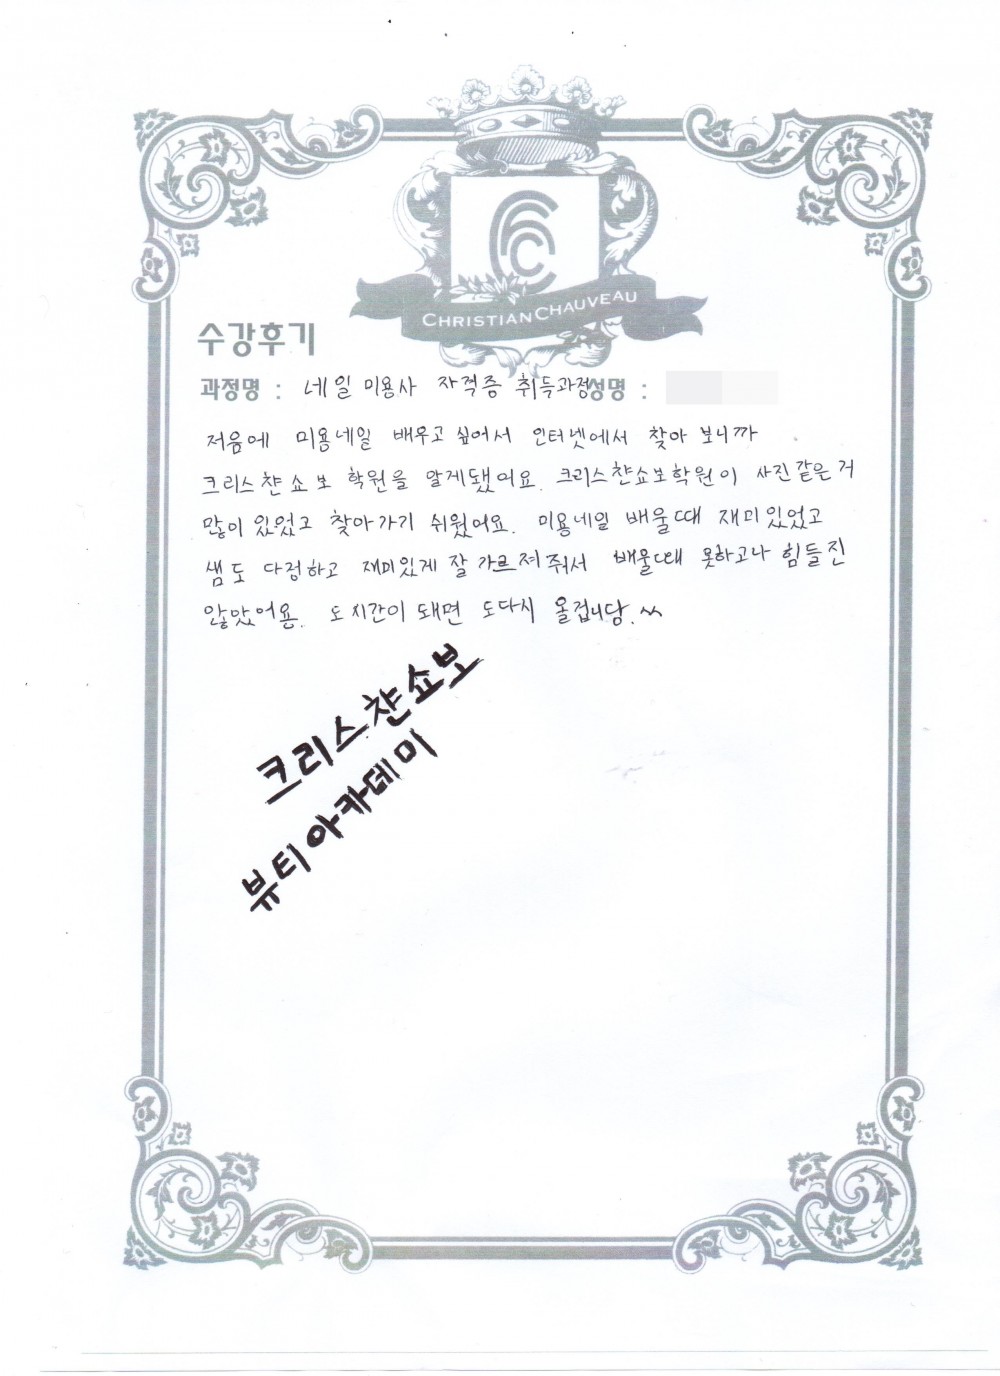 CHRISTIAN CHAUVEAU
수강후기
과정명 : 네일 미용사 자격증 취득과정 성명 :
저음에 미용네일 배우고 싶어서 인터넷에서 찾아 보니까
크리스챤쇼보 학원을 알게됐어요. 크리스챤쇼보학원이 사진같은거
많이 있었고 찾아가기 쉬웠어요. 미용네일 배울때 재미있었고
쌤도 다정하고 재미있게 잘 가르져줘서 배울때 못하고나 힘들진
않았어욘. 도 지간이 돼면 도다시 올겁니당.^^
크리스챤쇼보
뷰티아카데미